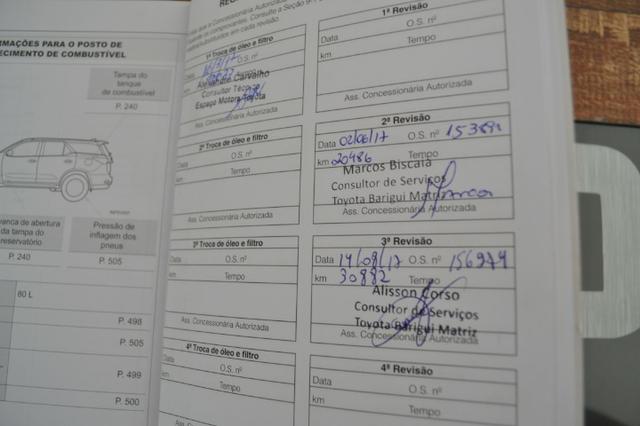 RMAÇÕES PARA O POSTO DE
ECIMENTO DE COMBUSTÍVEL
Tampa do
tanque
de combustível
P. 240
vanca de abertura
da tampa do
reservatório
P. 240
Pressão de
inflagem dos
pneus
P. 505
80 L
P. 498
P. 505
P. 499
P. 500
que a Concessionária Autorizada
componentes. Consulte a Seção
substituídos em cada revisão.
1ª Troca de óleo e filtro
O.S. nº
Alexandre Carvalho
Consultor Técnico
Espaço Motors Toyota
Ass. Concessionária Autorizada
2ª Troca de óleo e filtro
Data O.S. nº
km Tempo
Ass. Concessionária Autorizada
3ª Troca de óleo e filtro
Data O.S. nº
km Tempo
Ass. Concessionária Autorizada
4ª Troca de óleo e filtro
Data O.S. nº
km Tempo
1ª Revisão
Data O.S. nº
km Tempo
Ass. Concessionária Autorizada
2ª Revisão
Data 02/06/17 O.S. nº
km 20486 Tempo
Marcos Biscaia
Consultor de Serviços
Toyota Barigui Matriz
Ass. Concessionária Autorizada
3ª Revisão
Data 14/08/17 O.S. nº 156979
km 30882 Tempo
Alisson Corso
Consultor de Serviços
Toyota Barigui Matriz
Ass. Concessionária Autorizada
4ª Revisão
Data O.S. nº
km Tempo